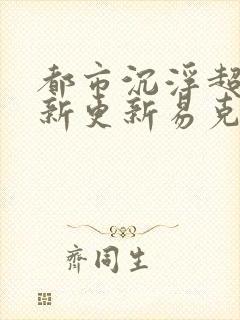 都市沉浮超
新更新易克
齐同生